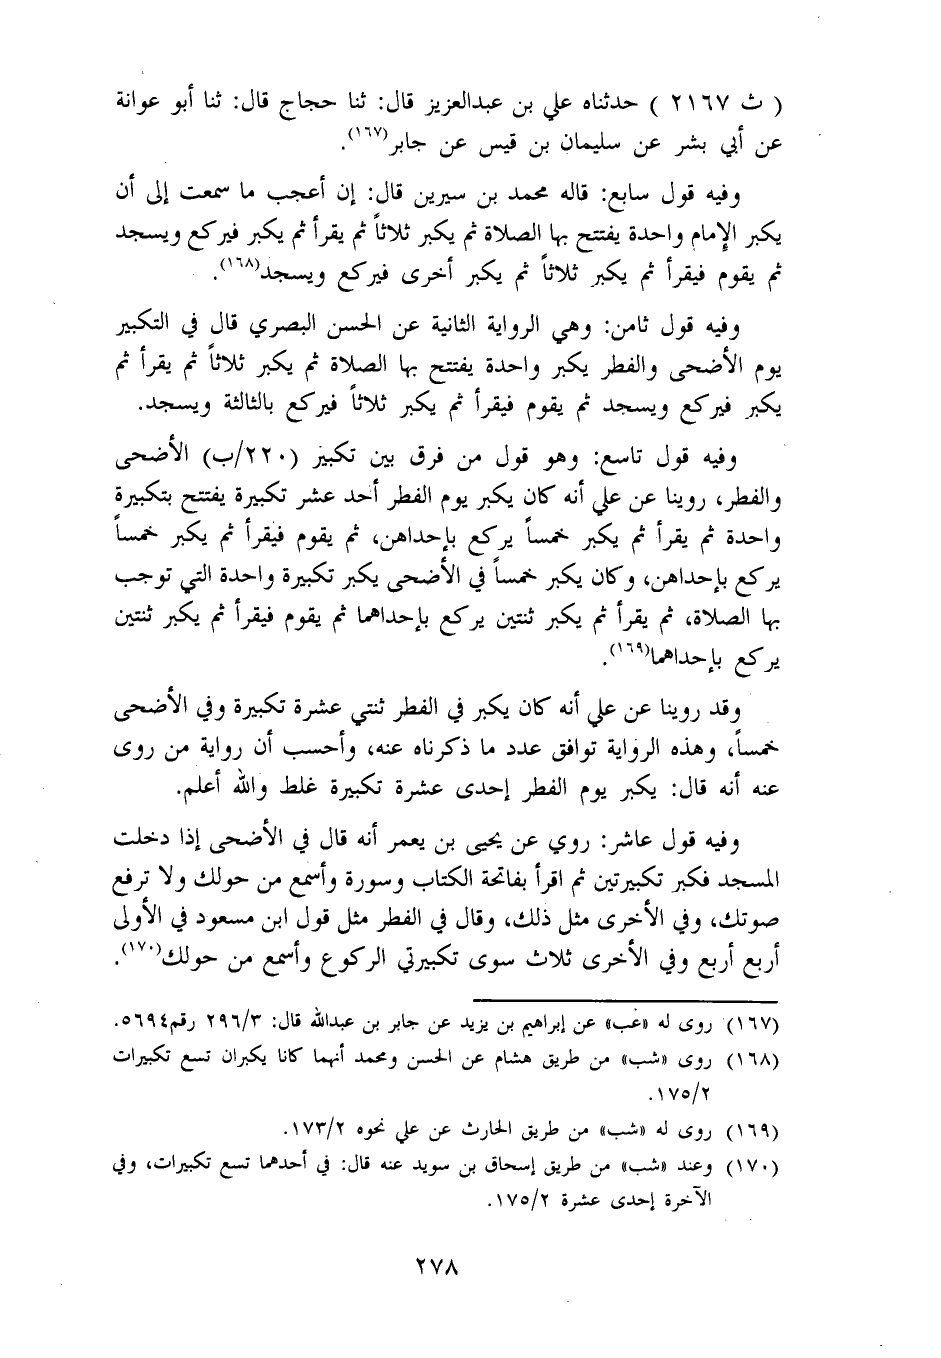 ( ث ٢١٦٧ ) حدثناه علي بن عبدالعزيز قال: ثنا حجاج قال: ثنا أبو عوانة
عن أبي بشر عن سليمان بن قيس عن جابر(١٦٧).
وفيه قول سابع: قاله محمد بن سيرين قال: إن أعجب ما سمعت إلى أن
يكبر الإمام واحدة يفتتح بها الصلاة ثم يكبر ثلاثاً ثم يقرأ ثم يكبر فيركع ويسجد
ثم يقوم فيقرأ ثم يكبر ثلاثاً ثم يكبر أخرى فيركع ويسجد(١٦٨).
وفيه قول ثامن: وهي الرواية الثانية عن الحسن البصري قال في التكبير
يوم الأضحى والفطر يكبر واحدة يفتتح بها الصلاة ثم يكبر ثلاثاً ثم يقرأ ثم
يكبر فيركع ويسجد ثم يقوم فيقرأ ثم يكبر ثلاثاً فيركع بالثالثة ويسجد.
وفيه قول تاسع: وهو قول من فرق بين تكبير (٢٢٠/ب) الأضحى
والفطر، روينا عن علي أنه كان يكبر يوم الفطر أحد عشر تكبيرة يفتتح بتكبيرة
واحدة ثم يقرأ ثم يكبر خمساً يركع بإحداهن، ثم يقوم فيقرأ ثم يكبر خمساً
يركع بإحداهن، وكان يكبر خمساً في الأضحى يكبر تكبيرة واحدة التي توجب
بها الصلاة، ثم يقرأ ثم يكبر ثنتين يركع بإحداهما ثم يقوم فيقرأ ثم يكبر ثنتين
يركع بإحداهما(١٦٩).
وقد روينا عن علي أنه كان يكبر في الفطر ثنتي عشرة تكبيرة وفي الأضحى
خمساً، وهذه الرواية توافق عدد ما ذكرناه عنه، وأحسب أن رواية من روى
عنه أنه قال: يكبر يوم الفطر إحدى عشرة تكبيرة غلط والله أعلم.
وفيه قول عاشر: روي عن يحيى بن يعمر أنه قال في الأضحى إذا دخلت
المسجد فكبر تكبيرتين ثم اقرأ بفاتحة الكتاب وسورة وأسمع من حولك ولا ترفع
صوتك، وفي الأخرى مثل ذلك، وقال في الفطر مثل قول ابن مسعود في الأولى
أربع أربع وفي الأخرى ثلاث سوى تكبيرتي الركوع وأسمع من حولك(١٧٠).
(١٦٧) روى له «عب» عن إبراهيم بن يزيد عن جابر بن عبدالله قال: ٢٩٦/٣ رقم٥٦٩٤.
(١٦٨) روى «شب» من طريق هشام عن الحسن ومحمد أنهما كانا يكبران تسع تكبيرات
١٧٥/٢.
(١٦٩) روى له «شب» من طريق الحارث عن علي نحوه ١٧٣/٢.
(١٧٠) وعند «شب» من طريق إسحاق بن سويد عنه قال: في أحدهما تسع تكبيرات، وفي
الآخرة إحدى عشرة ١٧٥/٢.
٢٧٨